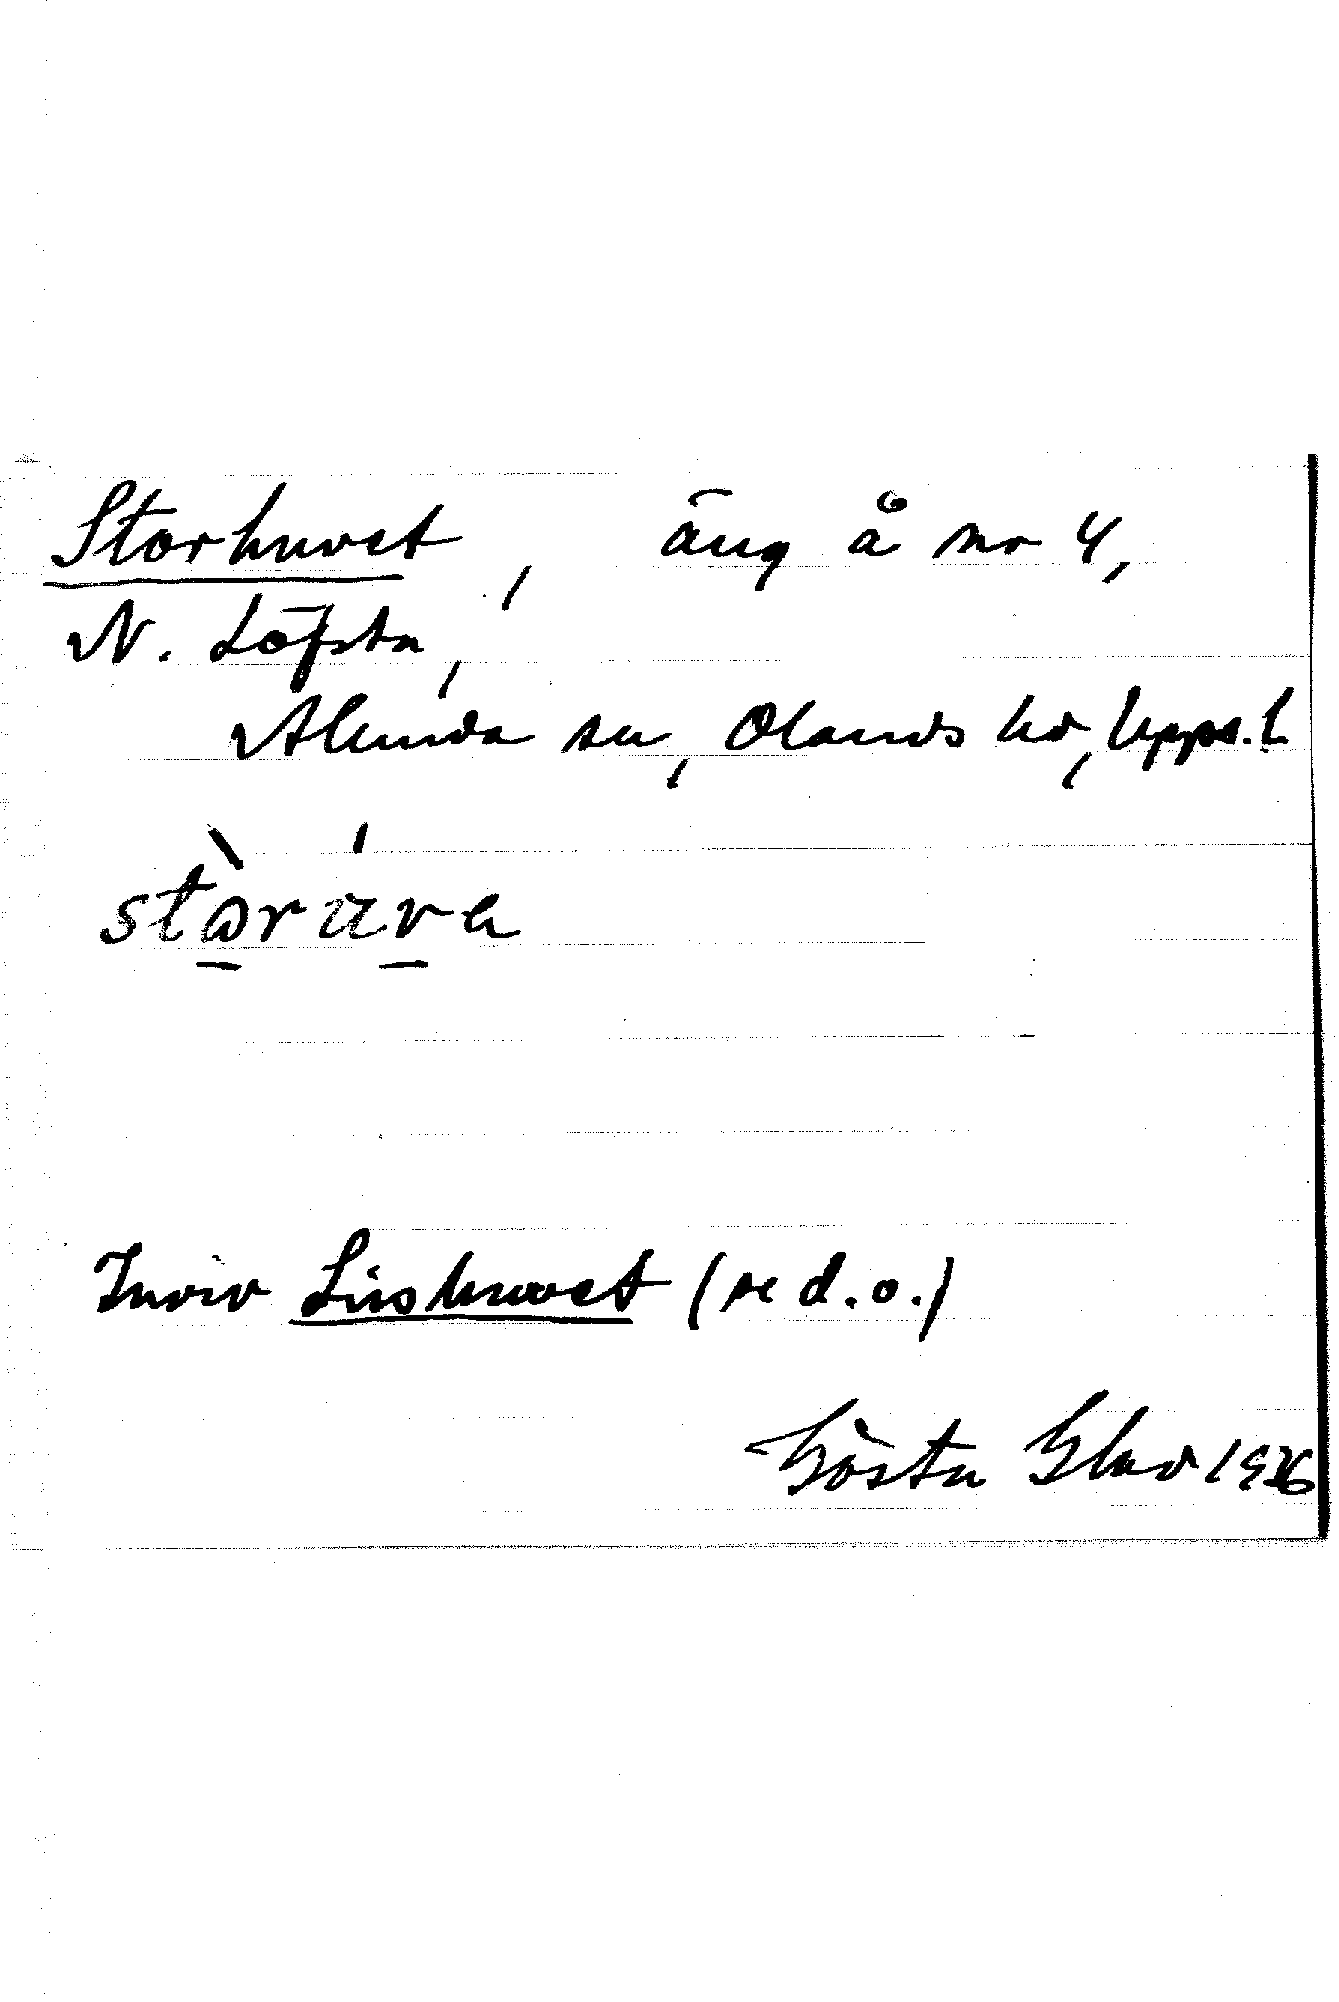 Storhuvet, äng å nr 4,
N. Löfsta,
Alunda sn, Olands hd, Upps. l.
stòrúva
Invid Lishuvet (se d.o.)
Gösta Glad 1936